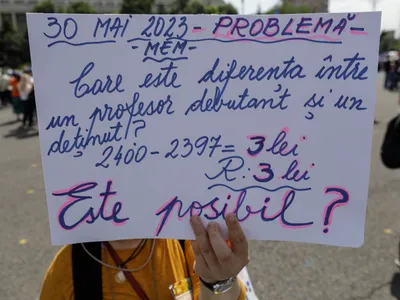 30 MAI 2023 - PROBLEMĂ -
- MEM -
Care este diferența între
un profesor debutant și un
deținut?
2400 - 2397 = 3 lei
R: 3 lei
Este posibil?